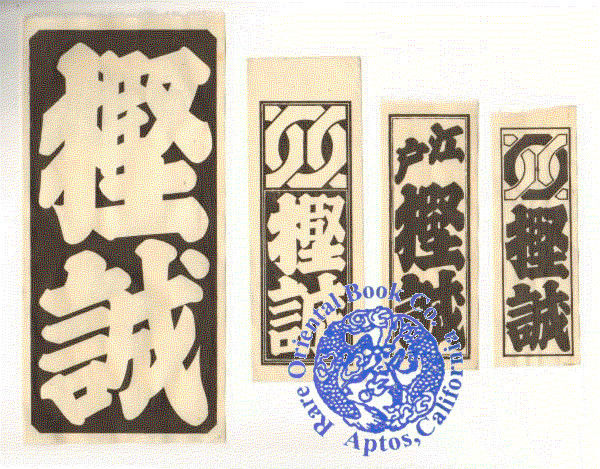 樫誠
樫誠
江戸
樫誠
樫誠
Rare Oriental Book Co.,
Aptos, California